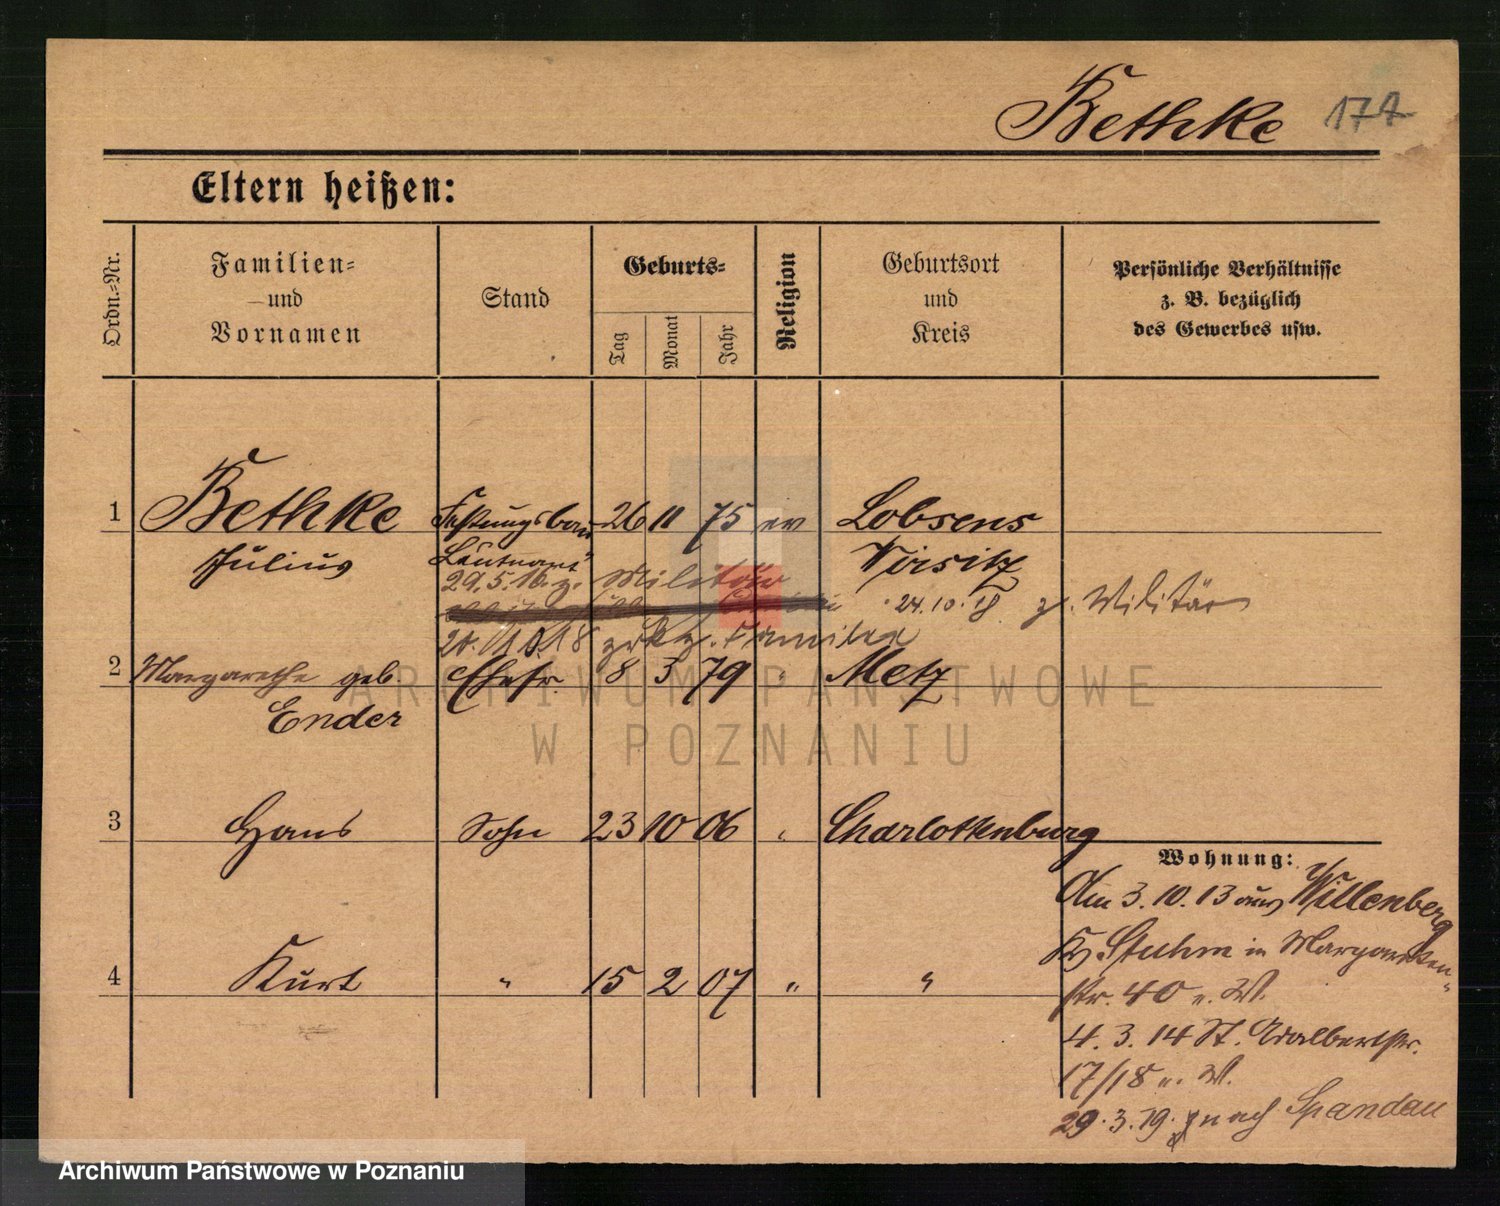 Bethke 177
Eltern heißen:
Ordn.-Nr.
Familien-
und
Vornamen
Stand
Geburts-
Tag
Monat
Jahr
Religion
Geburtsort
und
Kreis
Persönliche Verhältnisse
z. B. bezüglich
des Gewerbes usw.
1 Bethke Festungsbau- 26 11 75 ev Lobsens
Julius Leutnant Wirsitz
29.5.16. z. Militär
24.10.18 z. Militär
21.10.18 zrk z. Familie
2 Margarethe geb. Ehefr. 8 3 79 " Metz
Ender
3 Hans Sohn 23 10 06 " Charlottenburg
Wohnung:
Am 3.10.13 aus Willenberg
Kr. Stuhm in Margareten-
4 Kurt " 15 2 07 " "
str. 40 n. W.
4.3.14 St. Adalbertstr.
17/18 n. W.
29.3.19. nach Spandau
ARCHIWUM PAŃSTWOWE
W POZNANIU
Archiwum Państwowe w Poznaniu